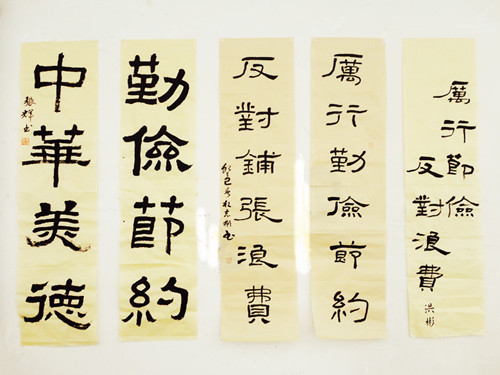 厲行節儉
反對浪費
洪彬
厲行勤儉節約
反對鋪張浪費
癸巳
勤儉節約
中華美德
輝书